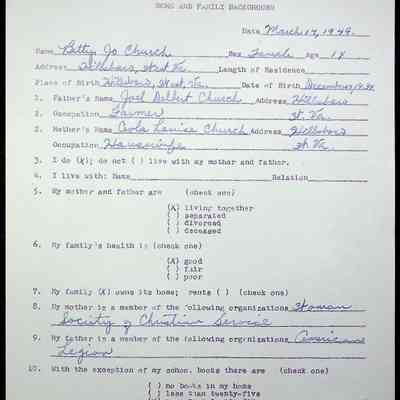 HOME AND FAMILY BACKGROUND
Date March 17, 1949.
Name Betty Jo Church Sex Female Age 18
Address Hillsboro, West Va. Length of Residence
Place of Birth Hillsboro, West, Va. Date of Birth December
1. Father's Name Joel Delbert Church Address Hillsboro
2. Occupation Farmer W. Va.
2. Mother's Name Louise Church Address Hillsboro
Occupation Housewife W. Va.
3. I do (X); do not ( ) live with my mother and father.
4. I live with: Name Relation
5. My mother and father are (check one)
(X) living together
( ) separated
( ) divorced
( ) deceased
6. My family's health is (check one)
(X) good
( ) fair
( ) poor
7. My family (X) owns its home; rents ( ) (check one)
8. My mother is a member of the following organizations Woman
Society of Christian Service
9. My father is a member of the following organizations American
Legion
10. With the exception of my school books there are (check one)
( ) no books in my home
( ) less than twenty-five